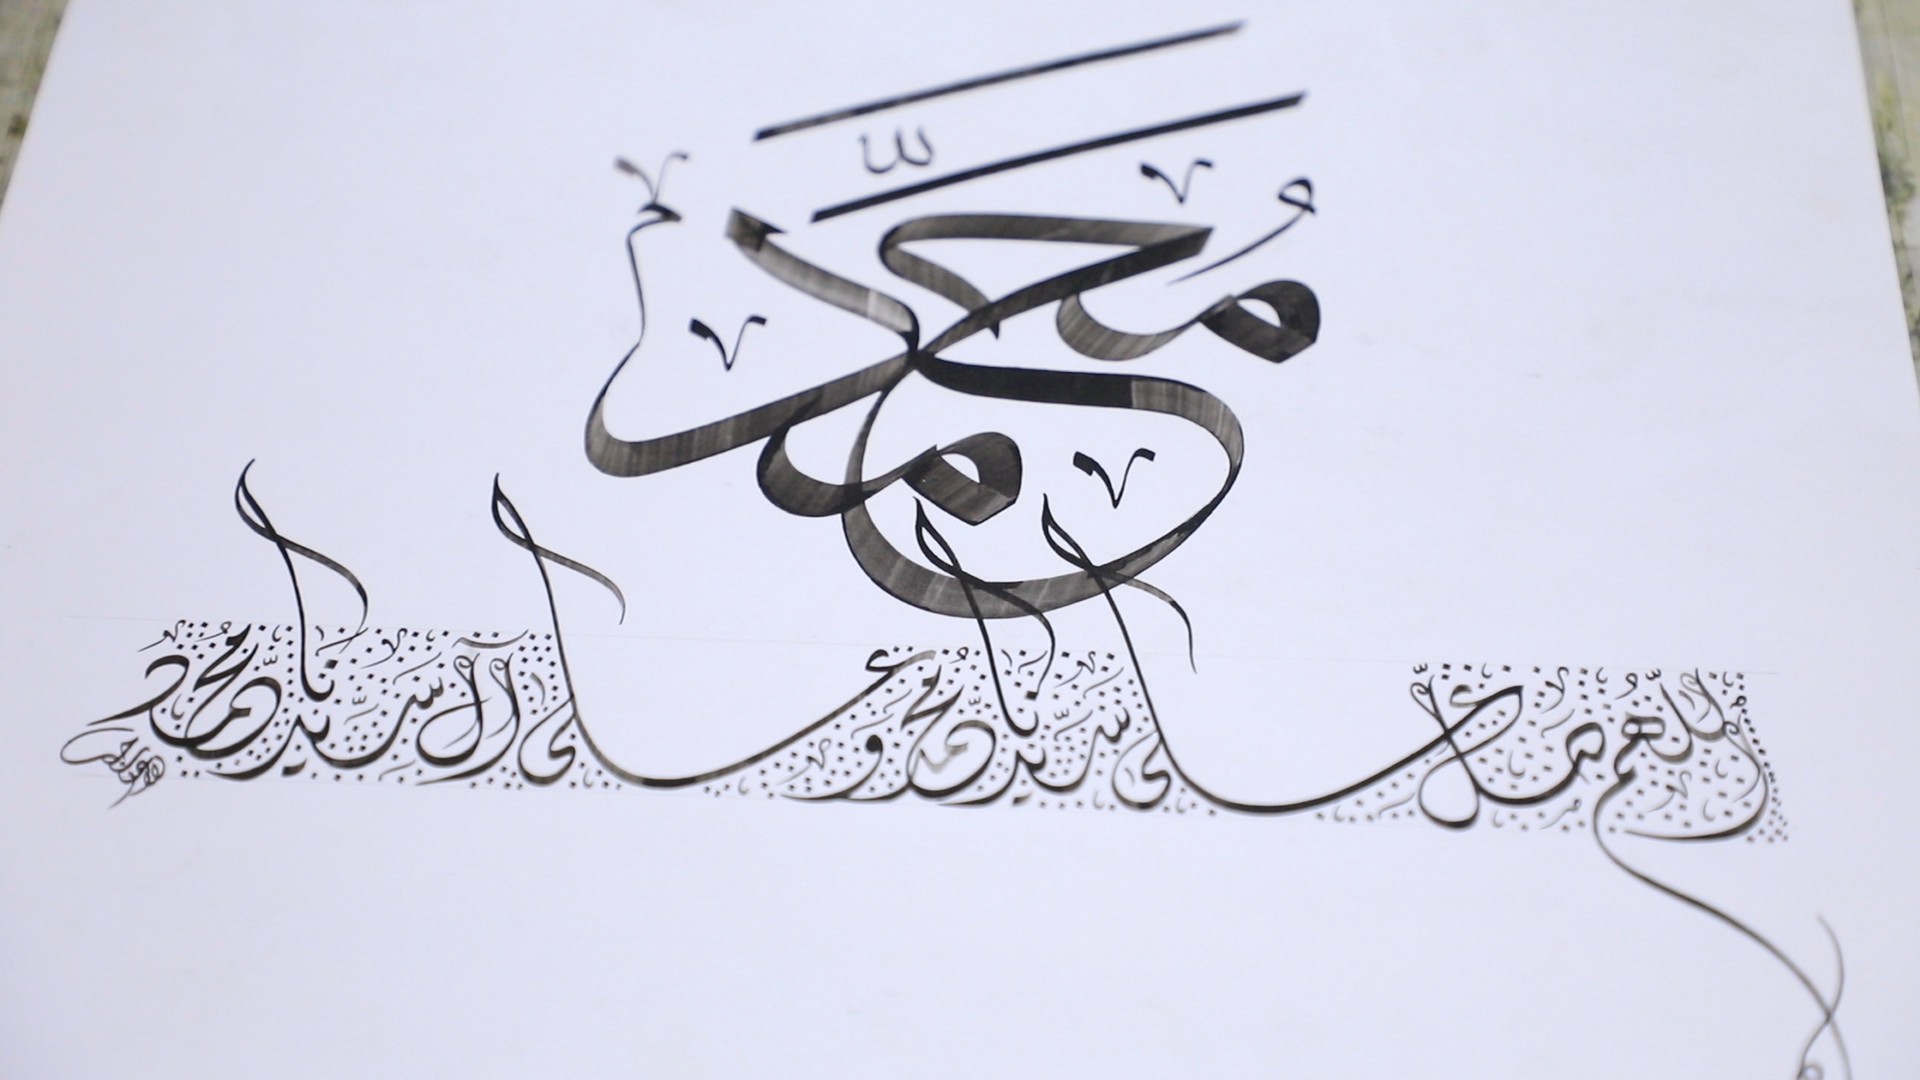 مُحَمَّدٌ
اللّٰهُمَّ صَلِّ عَلَى سَيِّدِنَا مُحَمَّدٍ وَعَلَى آلِ سَيِّدِنَا مُحَمَّدٍ